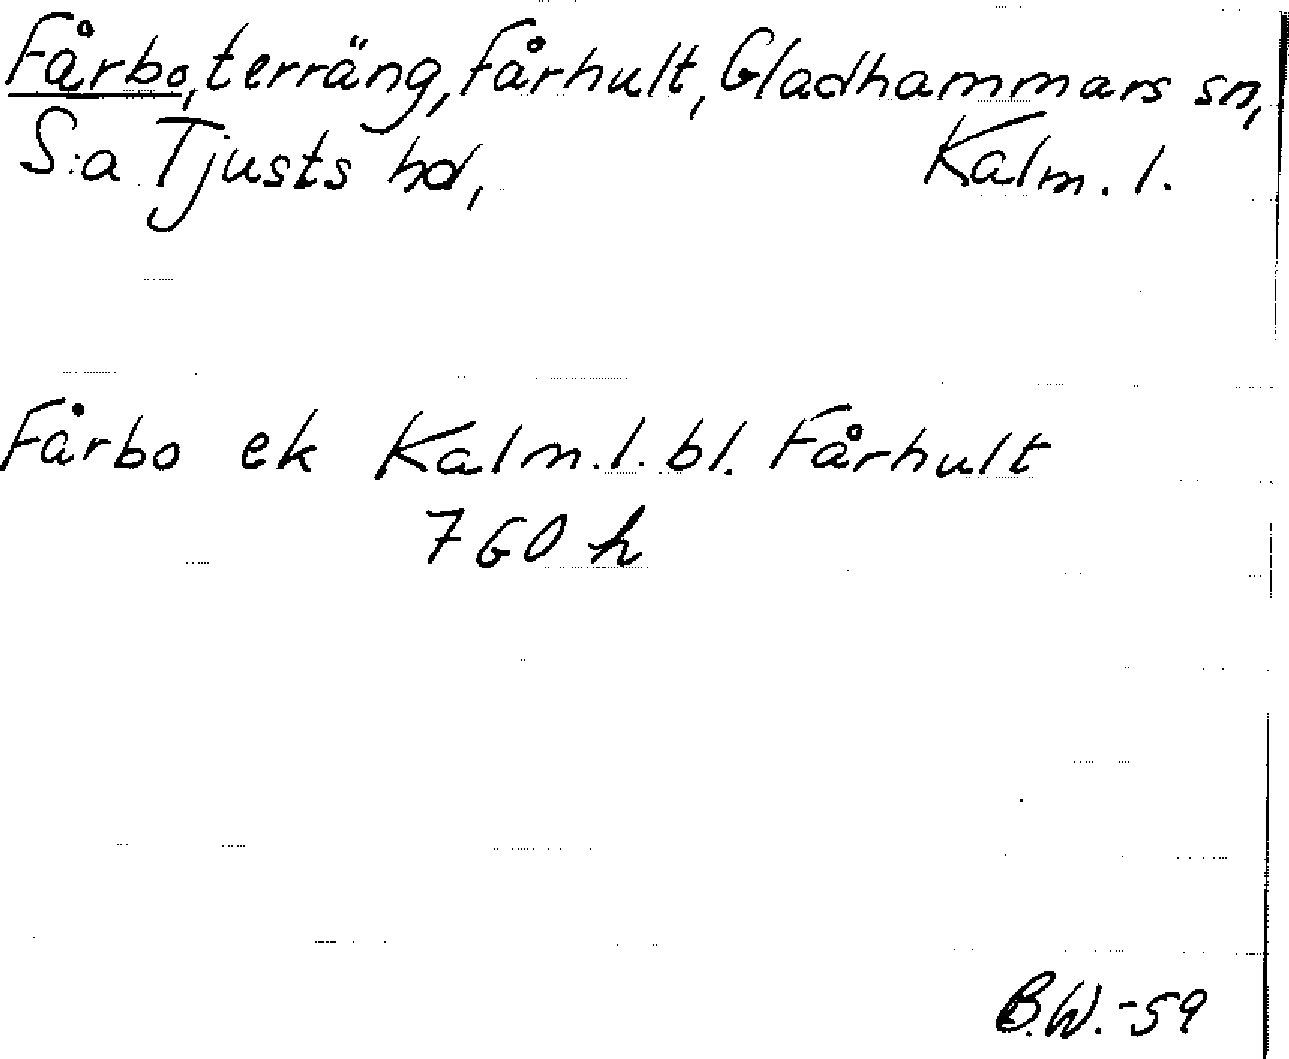 Fårbo, terräng, Fårhult, Gladhammars sn,
S:a Tjusts hd, Kalm. l.
Fårbo ek Kalm. l. bl. Fårhult
760 h
B.W.-59